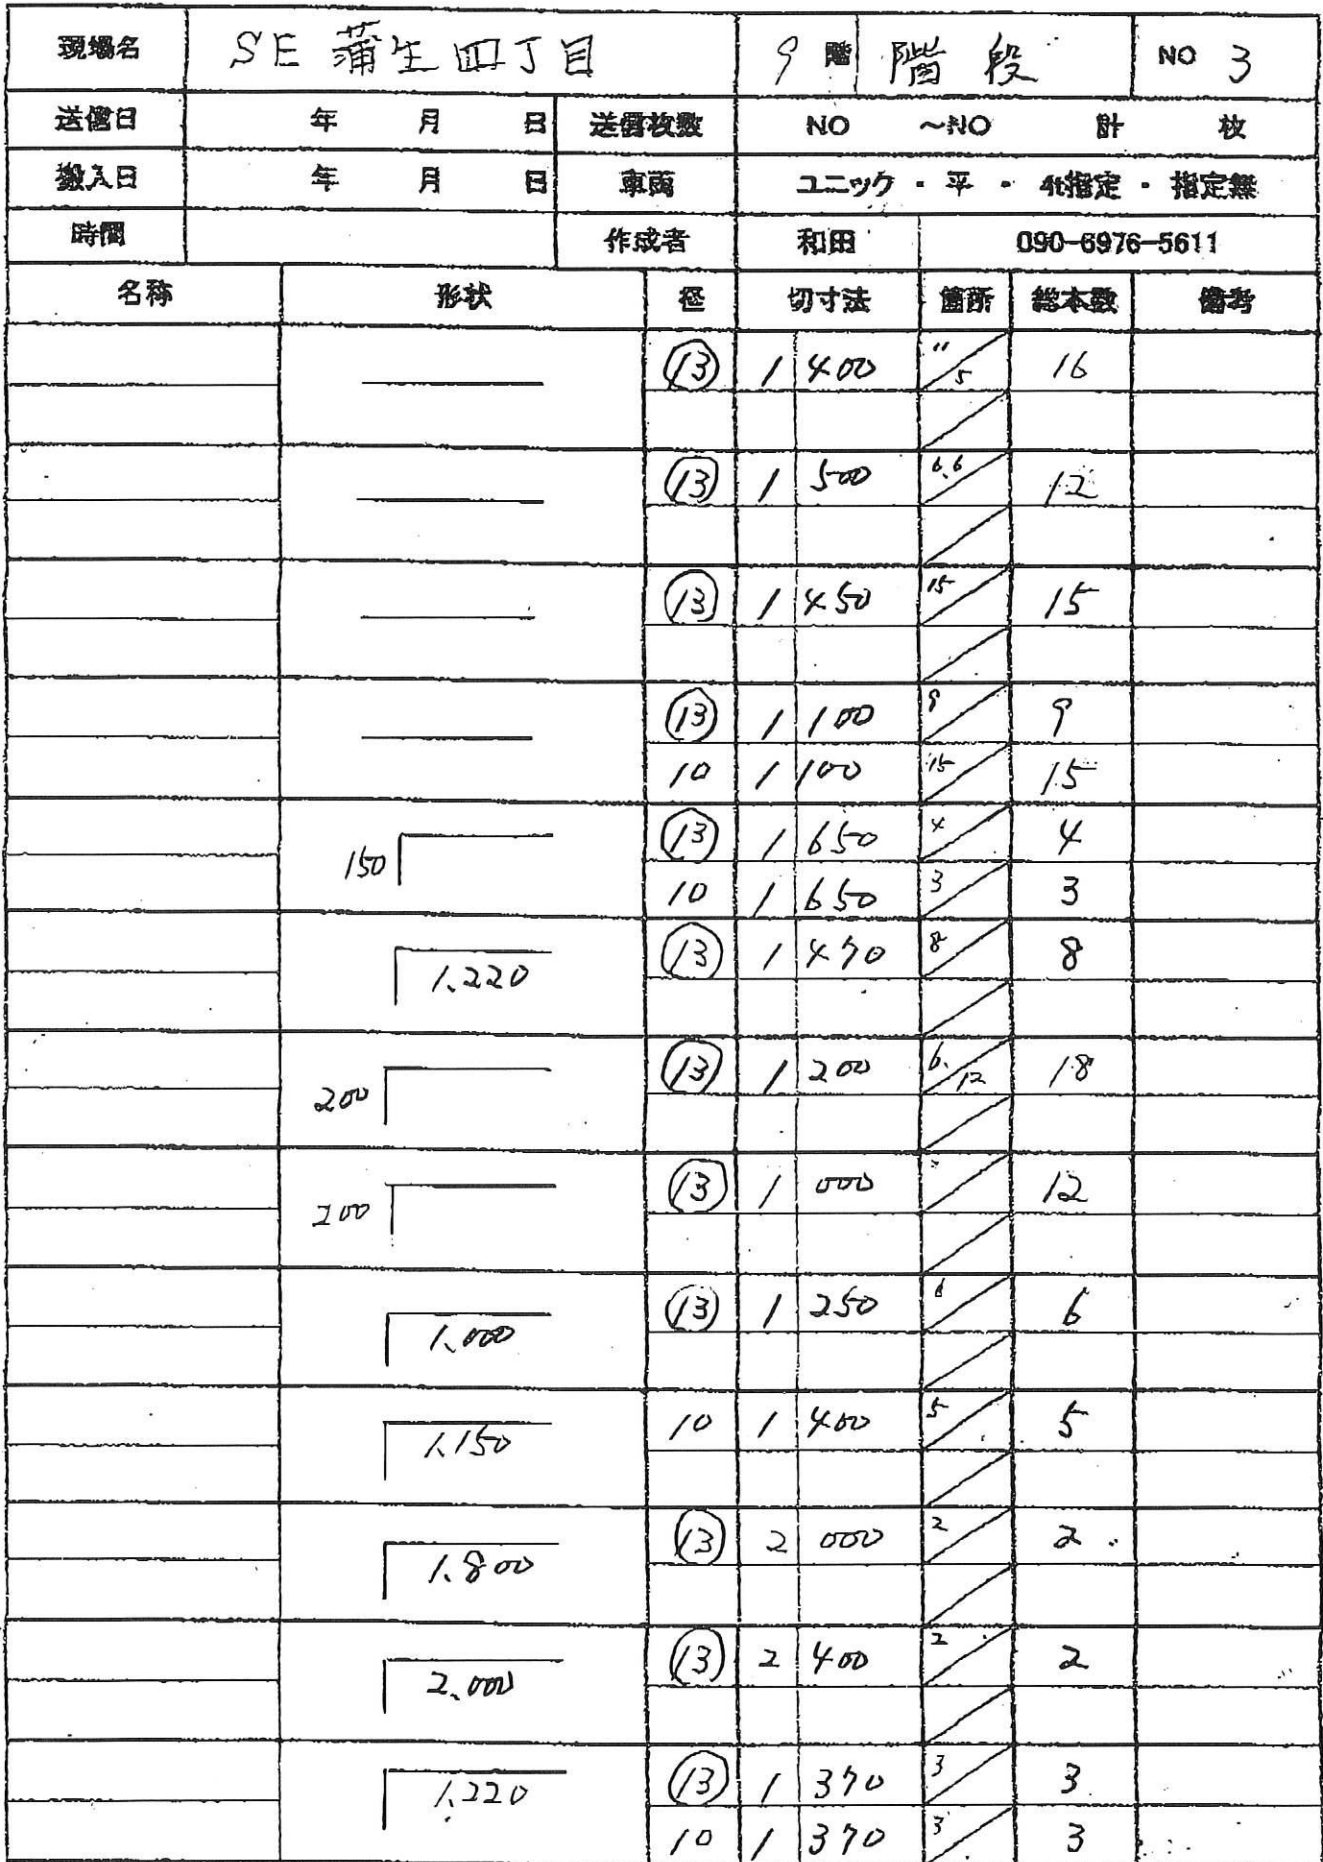 現場名 SE 蒲生四丁目 9 階 階段 NO 3
送信日 年 月 日 送信枚数 NO ～NO 計 枚
搬入日 年 月 日 車両 ユニック ・ 平 ・ 4t指定 ・ 指定無
時間 作成者 和田 090-6976-5611
名称 形状 径 切寸法 箇所 総本数 備考
⑬ 1 400 11/5 16
⑬ 1 500 6.6 12
⑬ 1 450 15 15
⑬ 1 100 9 9
10 1 100 15 15
150 ⑬ 1 650 4 4
10 1 650 3 3
1.220 ⑬ 1 470 8 8
200 ⑬ 1 200 6/12 18
200 ⑬ 1 000 12
1.000 ⑬ 1 250 6 6
1.150 10 1 400 5 5
1.800 ⑬ 2 000 2 2
2.000 ⑬ 2 400 2 2
1.220 ⑬ 1 370 3 3
10 1 370 3 3